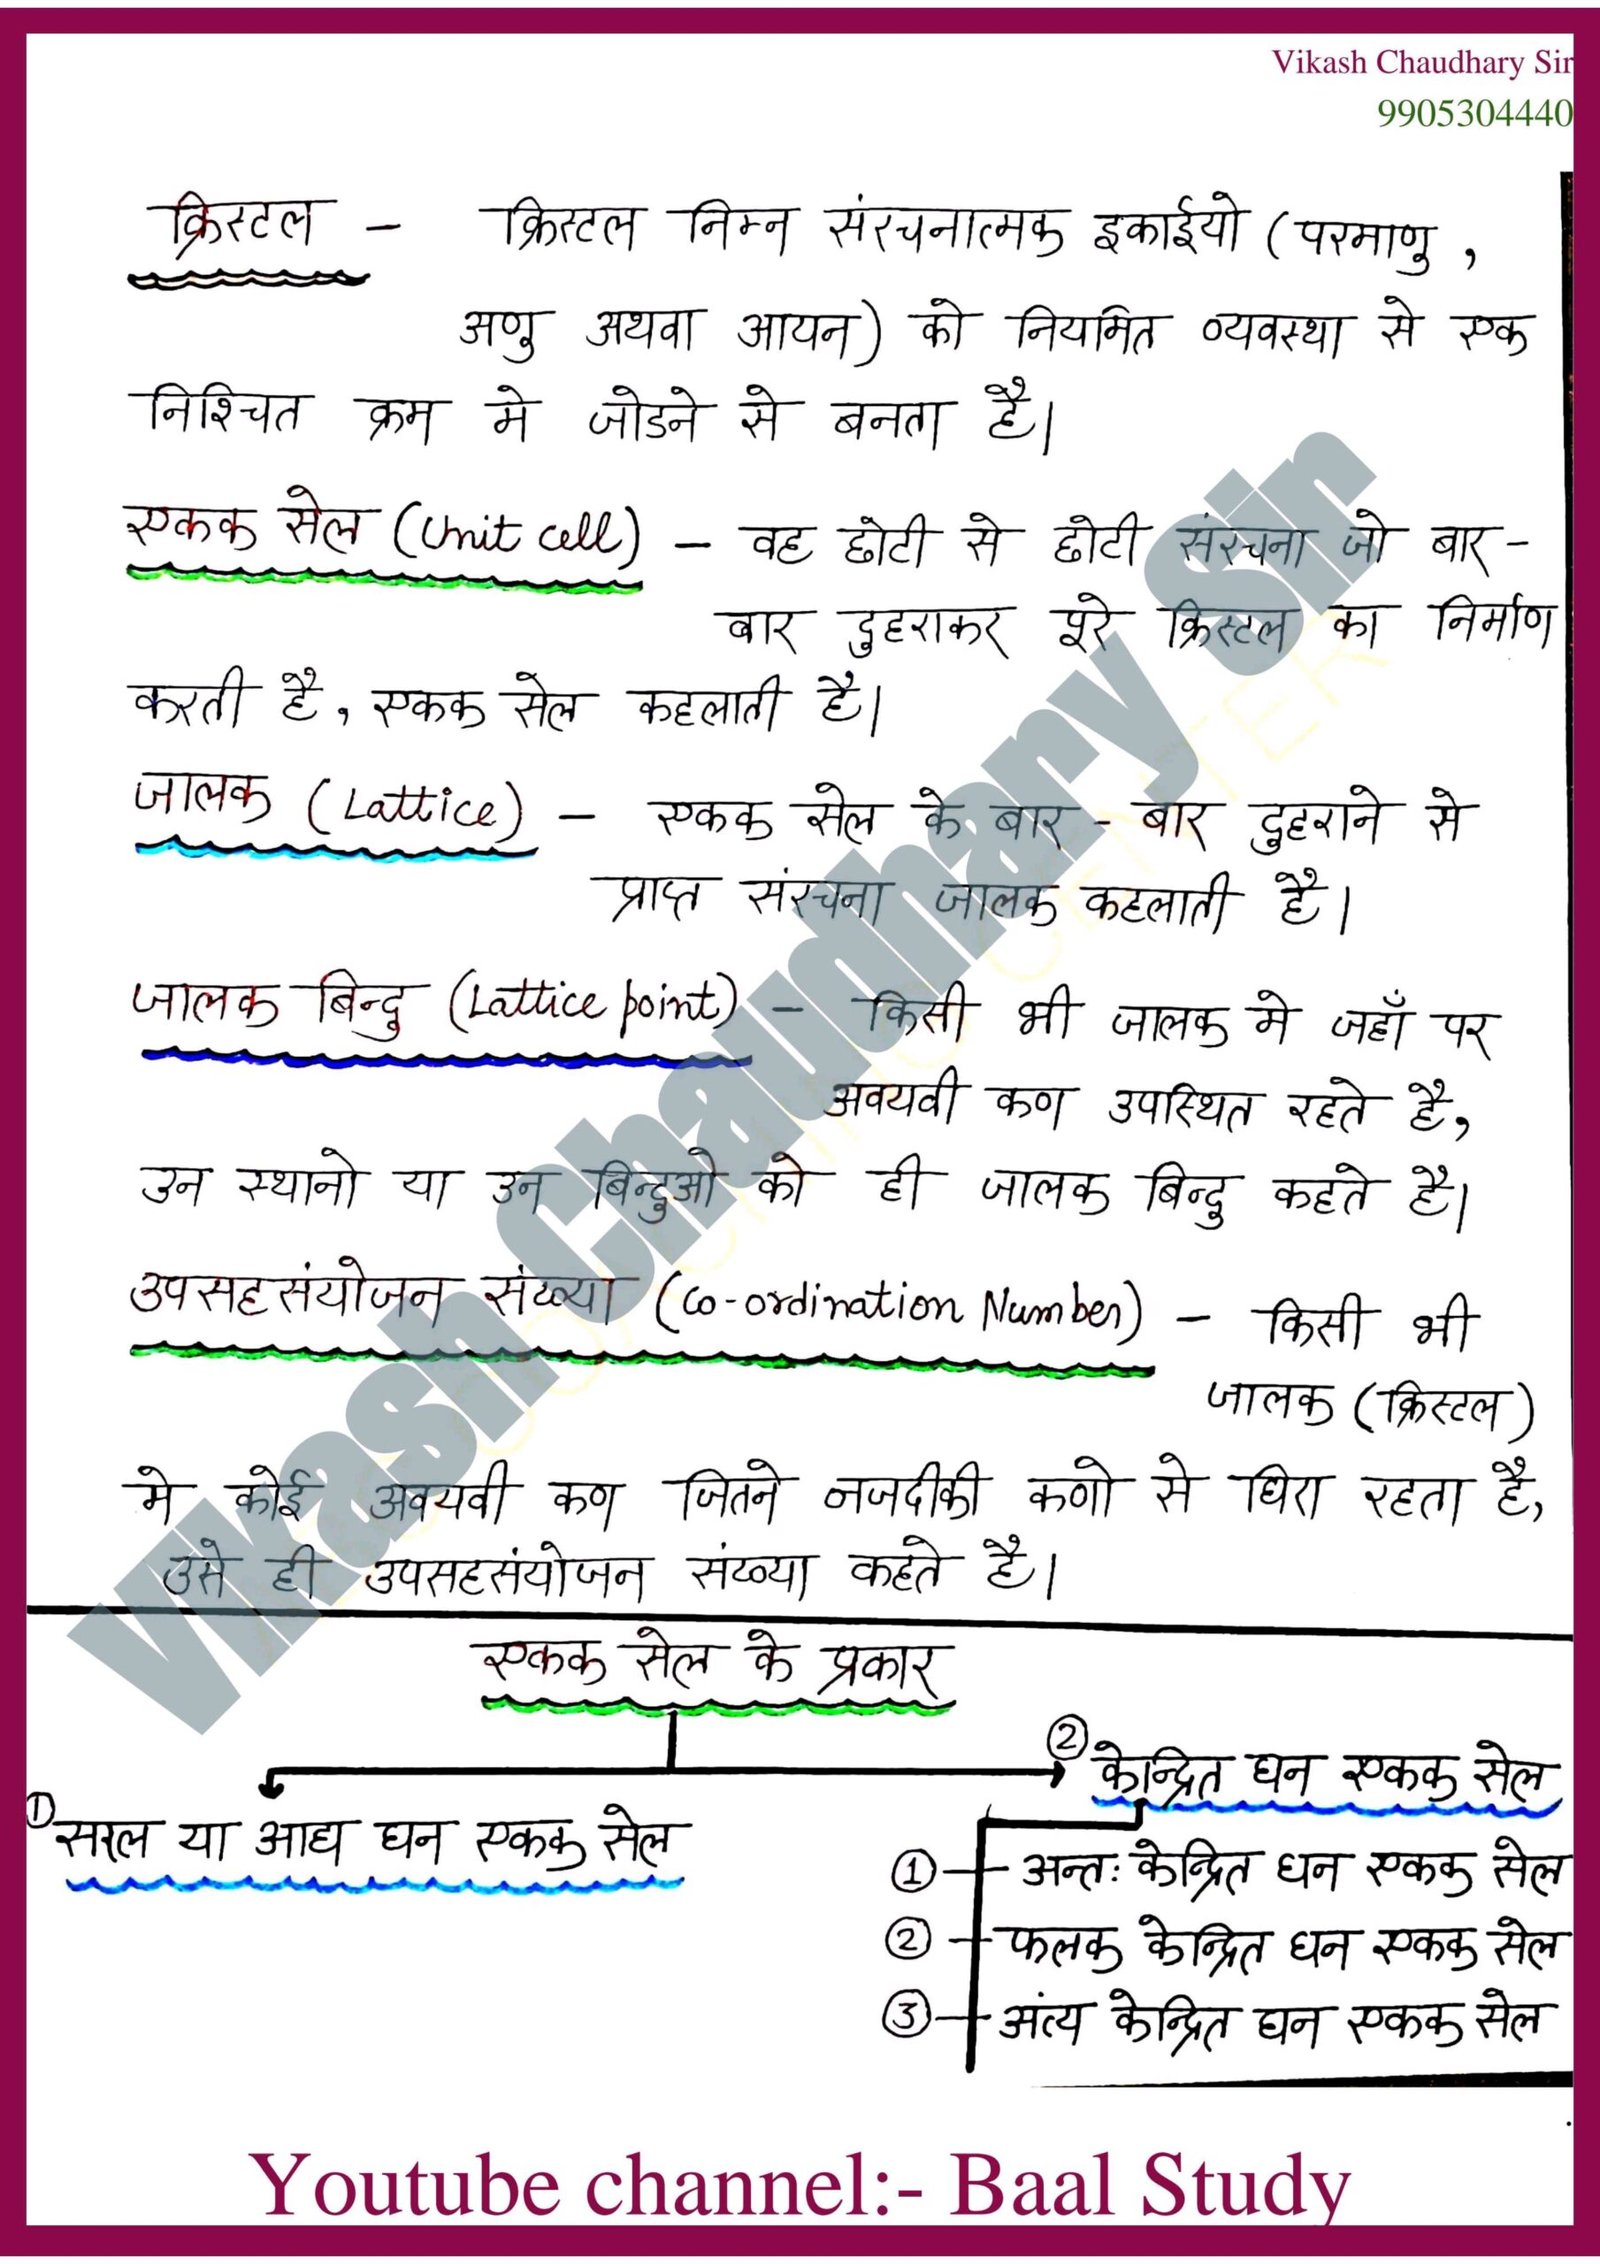 Vikash Chaudhary Sir
9905304440
क्रिस्टल - क्रिस्टल निम्न संरचनात्मक इकाईयो (परमाणु,
अणु अथवा आयन) को नियमित व्यवस्था से एक
निश्चित क्रम मे जोडने से बनता है।
एकक सेल (Unit cell) - वह छोटी से छोटी संरचना जो बार-
बार दुहराकर पूरे क्रिस्टल का निर्माण
करती है, एकक सेल कहलाती है।
जालक (Lattice) - एकक सेल के बार-बार दुहराने से
प्राप्त संरचना जालक कहलाती है।
जालक बिन्दु (Lattice point) - किसी भी जालक मे जहाँ पर
अवयवी कण उपस्थित रहते है,
उन स्थानो या उन बिन्दुओ को ही जालक बिन्दु कहते है।
उपसहसंयोजन संख्या (Co-ordination Number) - किसी भी
जालक (क्रिस्टल)
मे कोई अवयवी कण जितने नजदीकी कणो से घिरा रहता है,
उसे ही उपसहसंयोजन संख्या कहते है।
Vikash Chaudhary Sir
एकक सेल के प्रकार
② केन्द्रित घन एकक सेल
① सरल या आद्य घन एकक सेल
① अन्तः केन्द्रित घन एकक सेल
② फलक केन्द्रित घन एकक सेल
③ अंत्य केन्द्रित घन एकक सेल
Youtube channel:- Baal Study